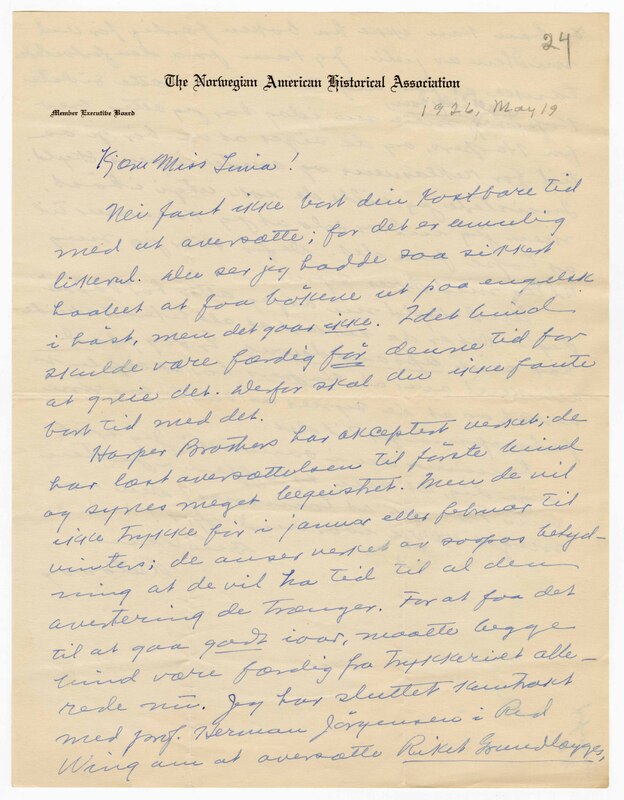 24
The Norwegian American Historical Association
Member Executive Board
1926, May 19
Kjære Miss Simia!
Nei fant ikke bort din kostbare tid
med at oversætte; for det er umulig
likevel. Du ser jeg hadde saa sikkert
haabet at faa bökene ut paa engelsk
i höst, men det gaar ikke. 2det bind
skulde være færdig för denne tid for
at greie det. Derfor skal du ikke fante
bort tid med det.
Harper Brothers har akceptert verket; de
har læst oversættelsen til förste bind
og synes meget begeistret. Men de vil
ikke trykke för i januar eller februar til
vinters; de anser verket av saapas betyd-
ning at de vil ha tid til al den
avertering de trænger. For at faa det
til at gaa godt ivaar, maatte begge
bind være færdig fra trykkeriet alle-
rede nu. Jeg har sluttet kontrakt
med prof. Herman Jörgensen i Red
Wing om at oversætte Riket Grundlægges,